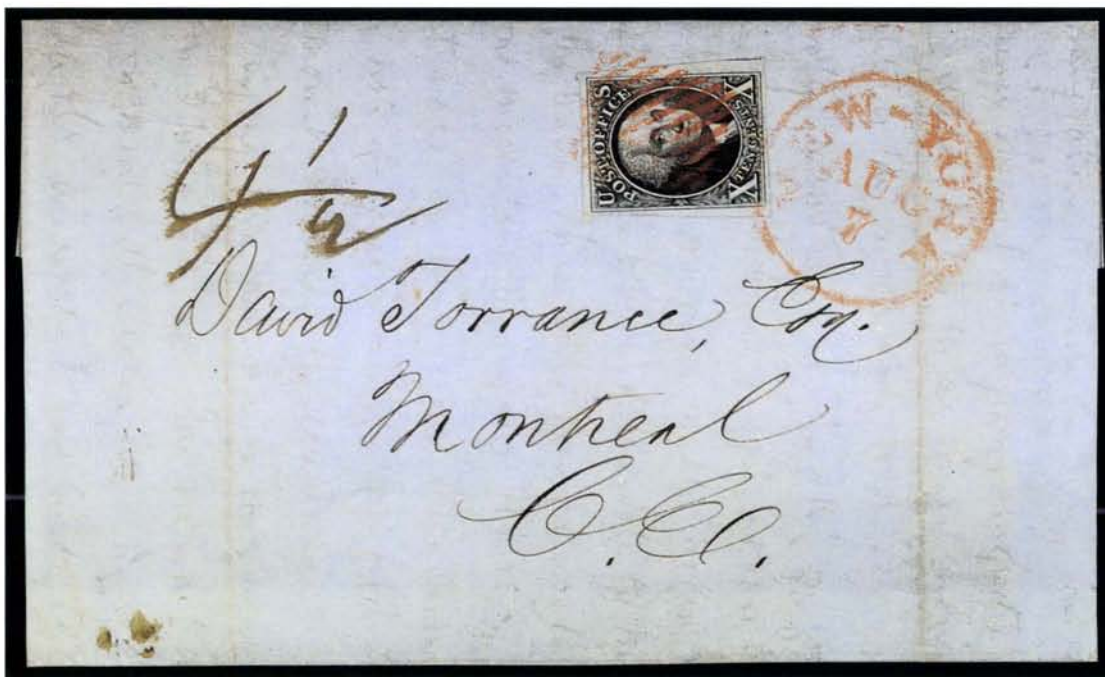 4 1/2
U S
POST OFFICE
X X
TEN CENTS
EW-YOR
AUG
7
David Torrance, Esq.
Montreal
C. E.